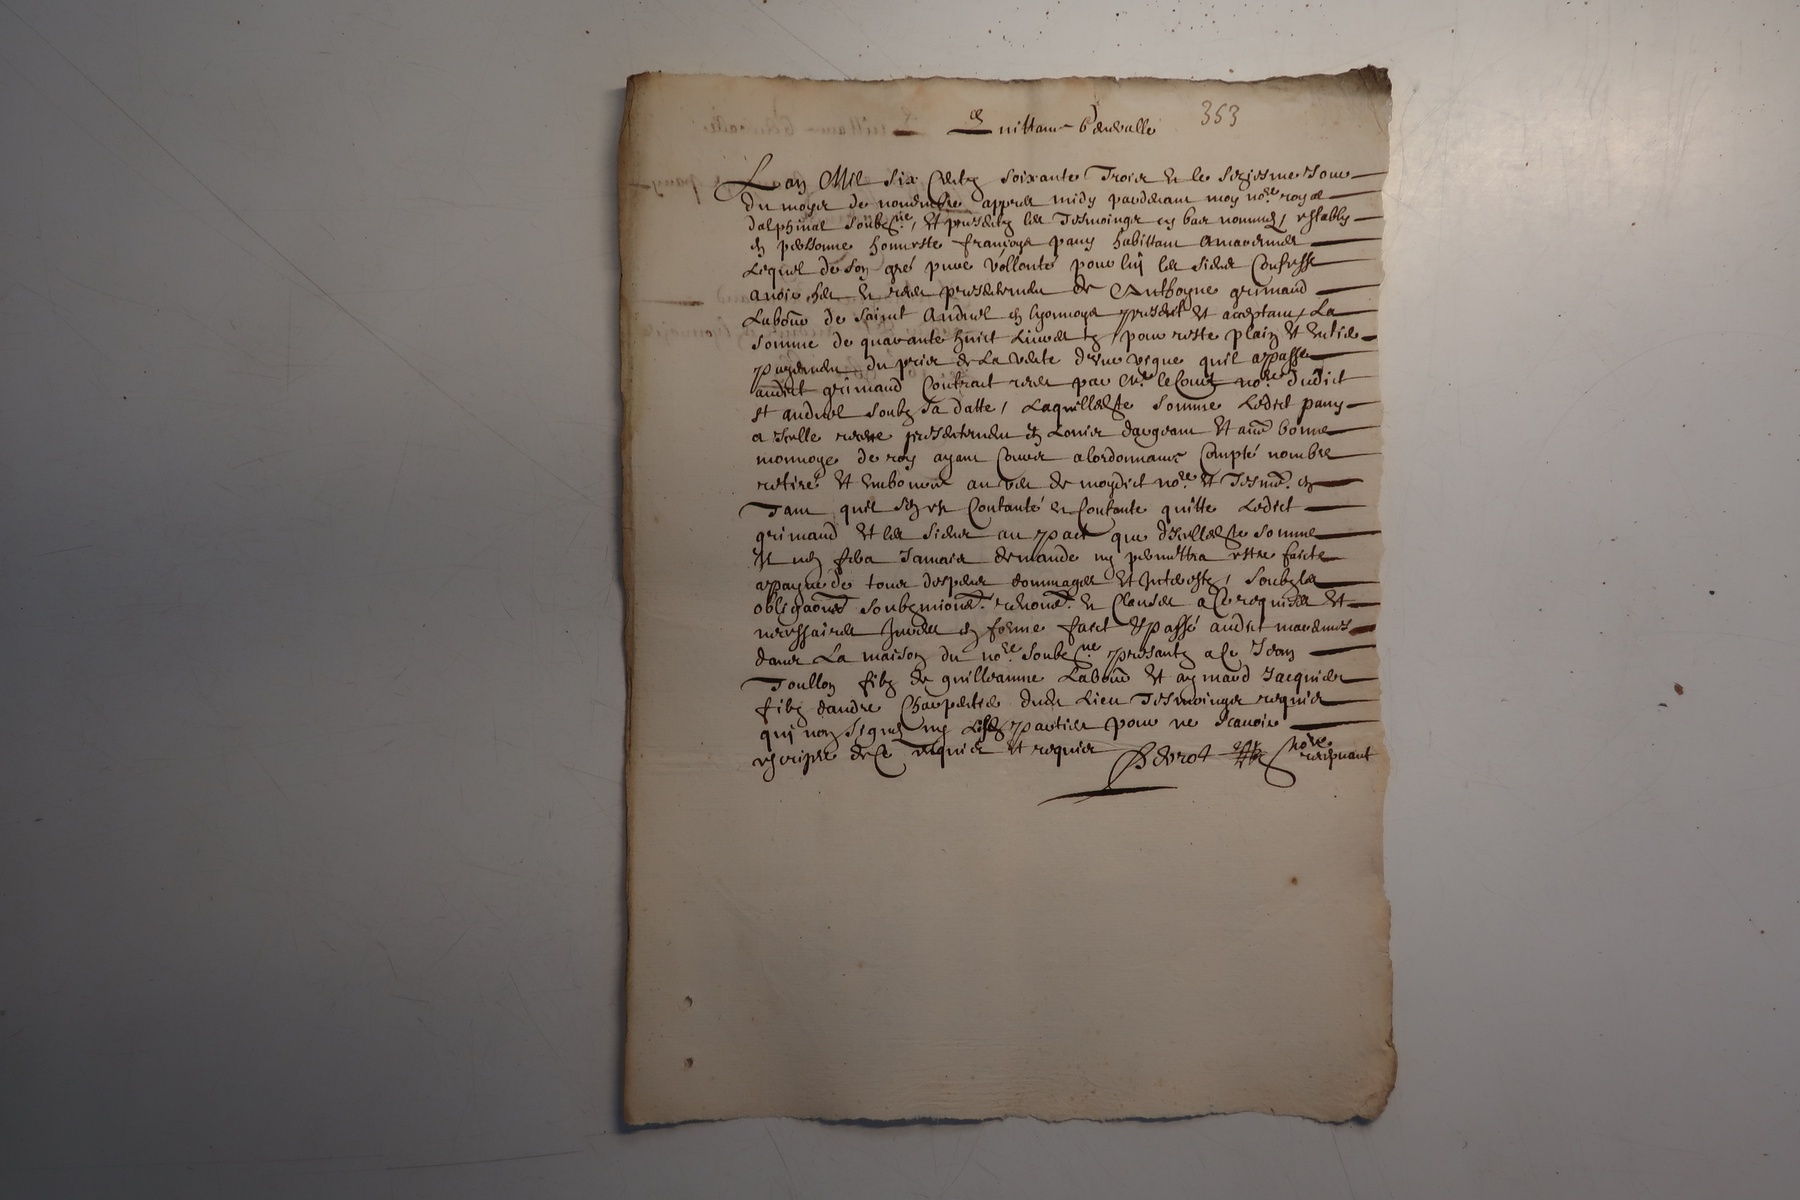 353
Quittance
Lan Mil Six Centz Soixante Trois et le Seziesme Jour
du moys de novembre appres midy pardevant moy no.re royal
dalphinal Soubz.ne, et presentz les Tesmoingz cy bas nommez, establys
en personne honneste françoys pany habittant
Lequel de Son gré pure vollonté pour luy les Siens Confesse
avoir heu et receu presentement de Anthoyne grimaud
Labour de Saint Andreol en lyonnoys present et acceptant, La
Somme de quarante huict Livres tz, pour reste plain et entier
payement du prix de La vente dune vigne quil a passé
audict grimaud Contract receu par no.re dudict
St andreol Soubz Sa datte, Laquelle Somme Ledict pany
a Icelle receue presentement en Louis dargeant et autre bonne
monnoye de roy ayant Cours a lordonnance Compté nombré
retiré et Emboursé au veu de moydict no.re et Tesm. en
Tant quil Sen est Contanté et Contante quitte Ledict
grimaud et les Siens au pact que dIcelle Somme
Il nen fera Jamais demande ny permettra estre faicte
a payne de tous despens dommages et Interestz, Soubz les
obligaons Soubzmions renons et Clauses a Ce requises et
necessaires Jurées en forme faict et passé audict
dans La maison du no.re Soubz.ne presantz a Ce Jean
Toullon filz de guilleaume Labour et aymard Jacquier
filz dandre Charpentier dudt Lieu Tesmoingz requis
qui non Signez ny Lesd parties pour ne Scavoir
escripre de Ce enquis et requis no.re